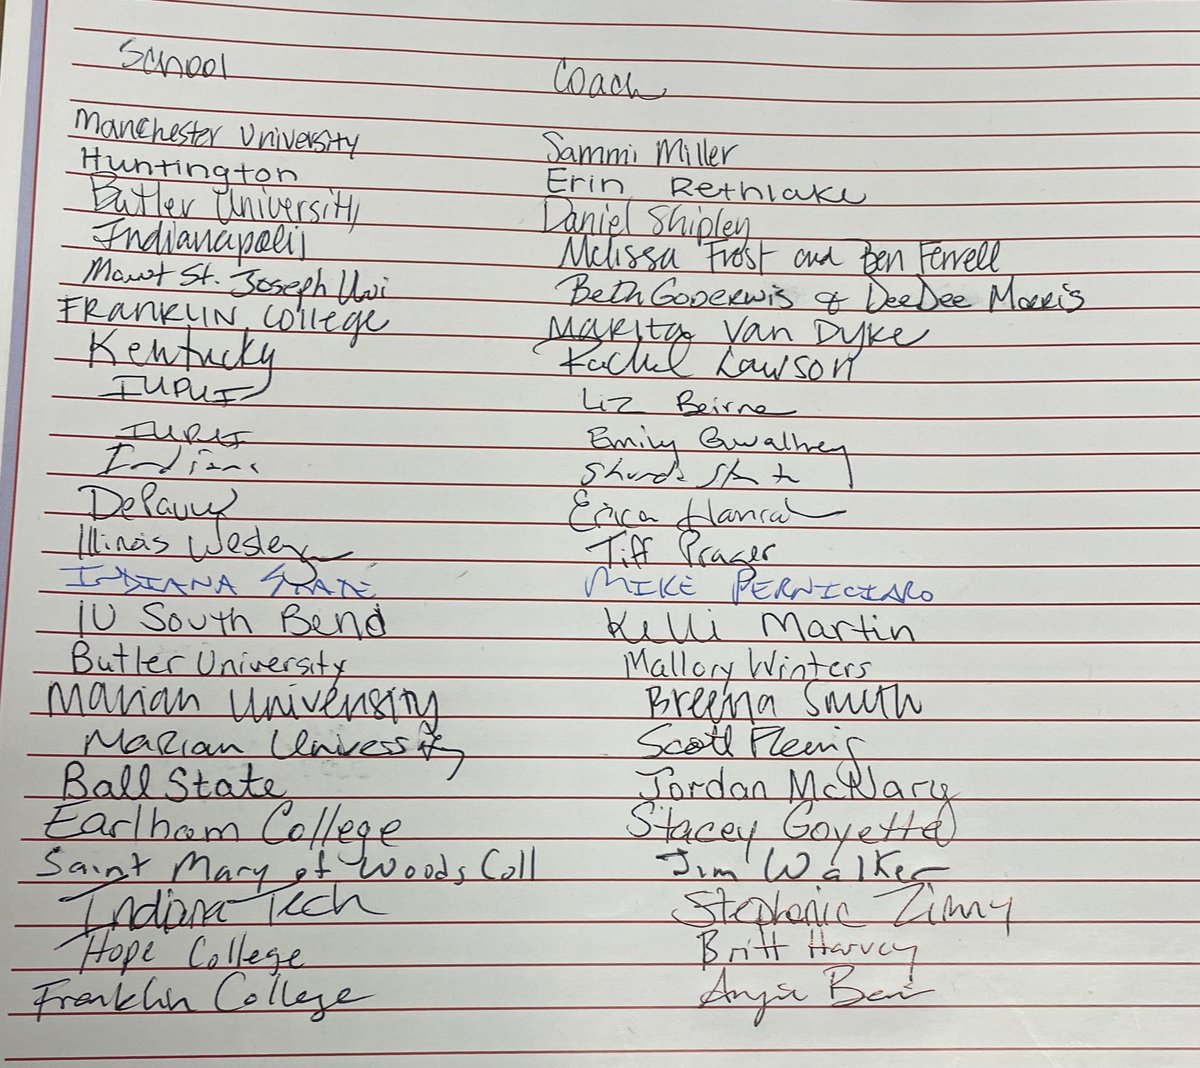 School Coach
Manchester University Sammi Miller
Huntington Erin Rethlake
Butler University Daniel Shipley
Indianapolis Melissa Frost and Ben Ferrell
Mount St. Joseph Uni Beth Goderwis & DeeDee Morris
FRANKLIN College Marita Van Dyke
Kentucky Rachel Lawson
IUPUI Liz Beirne
IUPUI Emily Gwaltney
Indiana
DePauw Erica Hanrah
Illinois Wesleyan Tiff Prager
INDIANA STATE MIKE PERNICIARO
IU South Bend Kelli Martin
Butler University Mallory Winters
Marian University Breena Smith
Marian University Scott Fleming
Ball State Jordan McNary
Earlham College Stacey Goyette
Saint Mary of Woods Coll Jim Walker
Indiana Tech Stephanie Zimny
Hope College Britt Harvey
Franklin College Angie